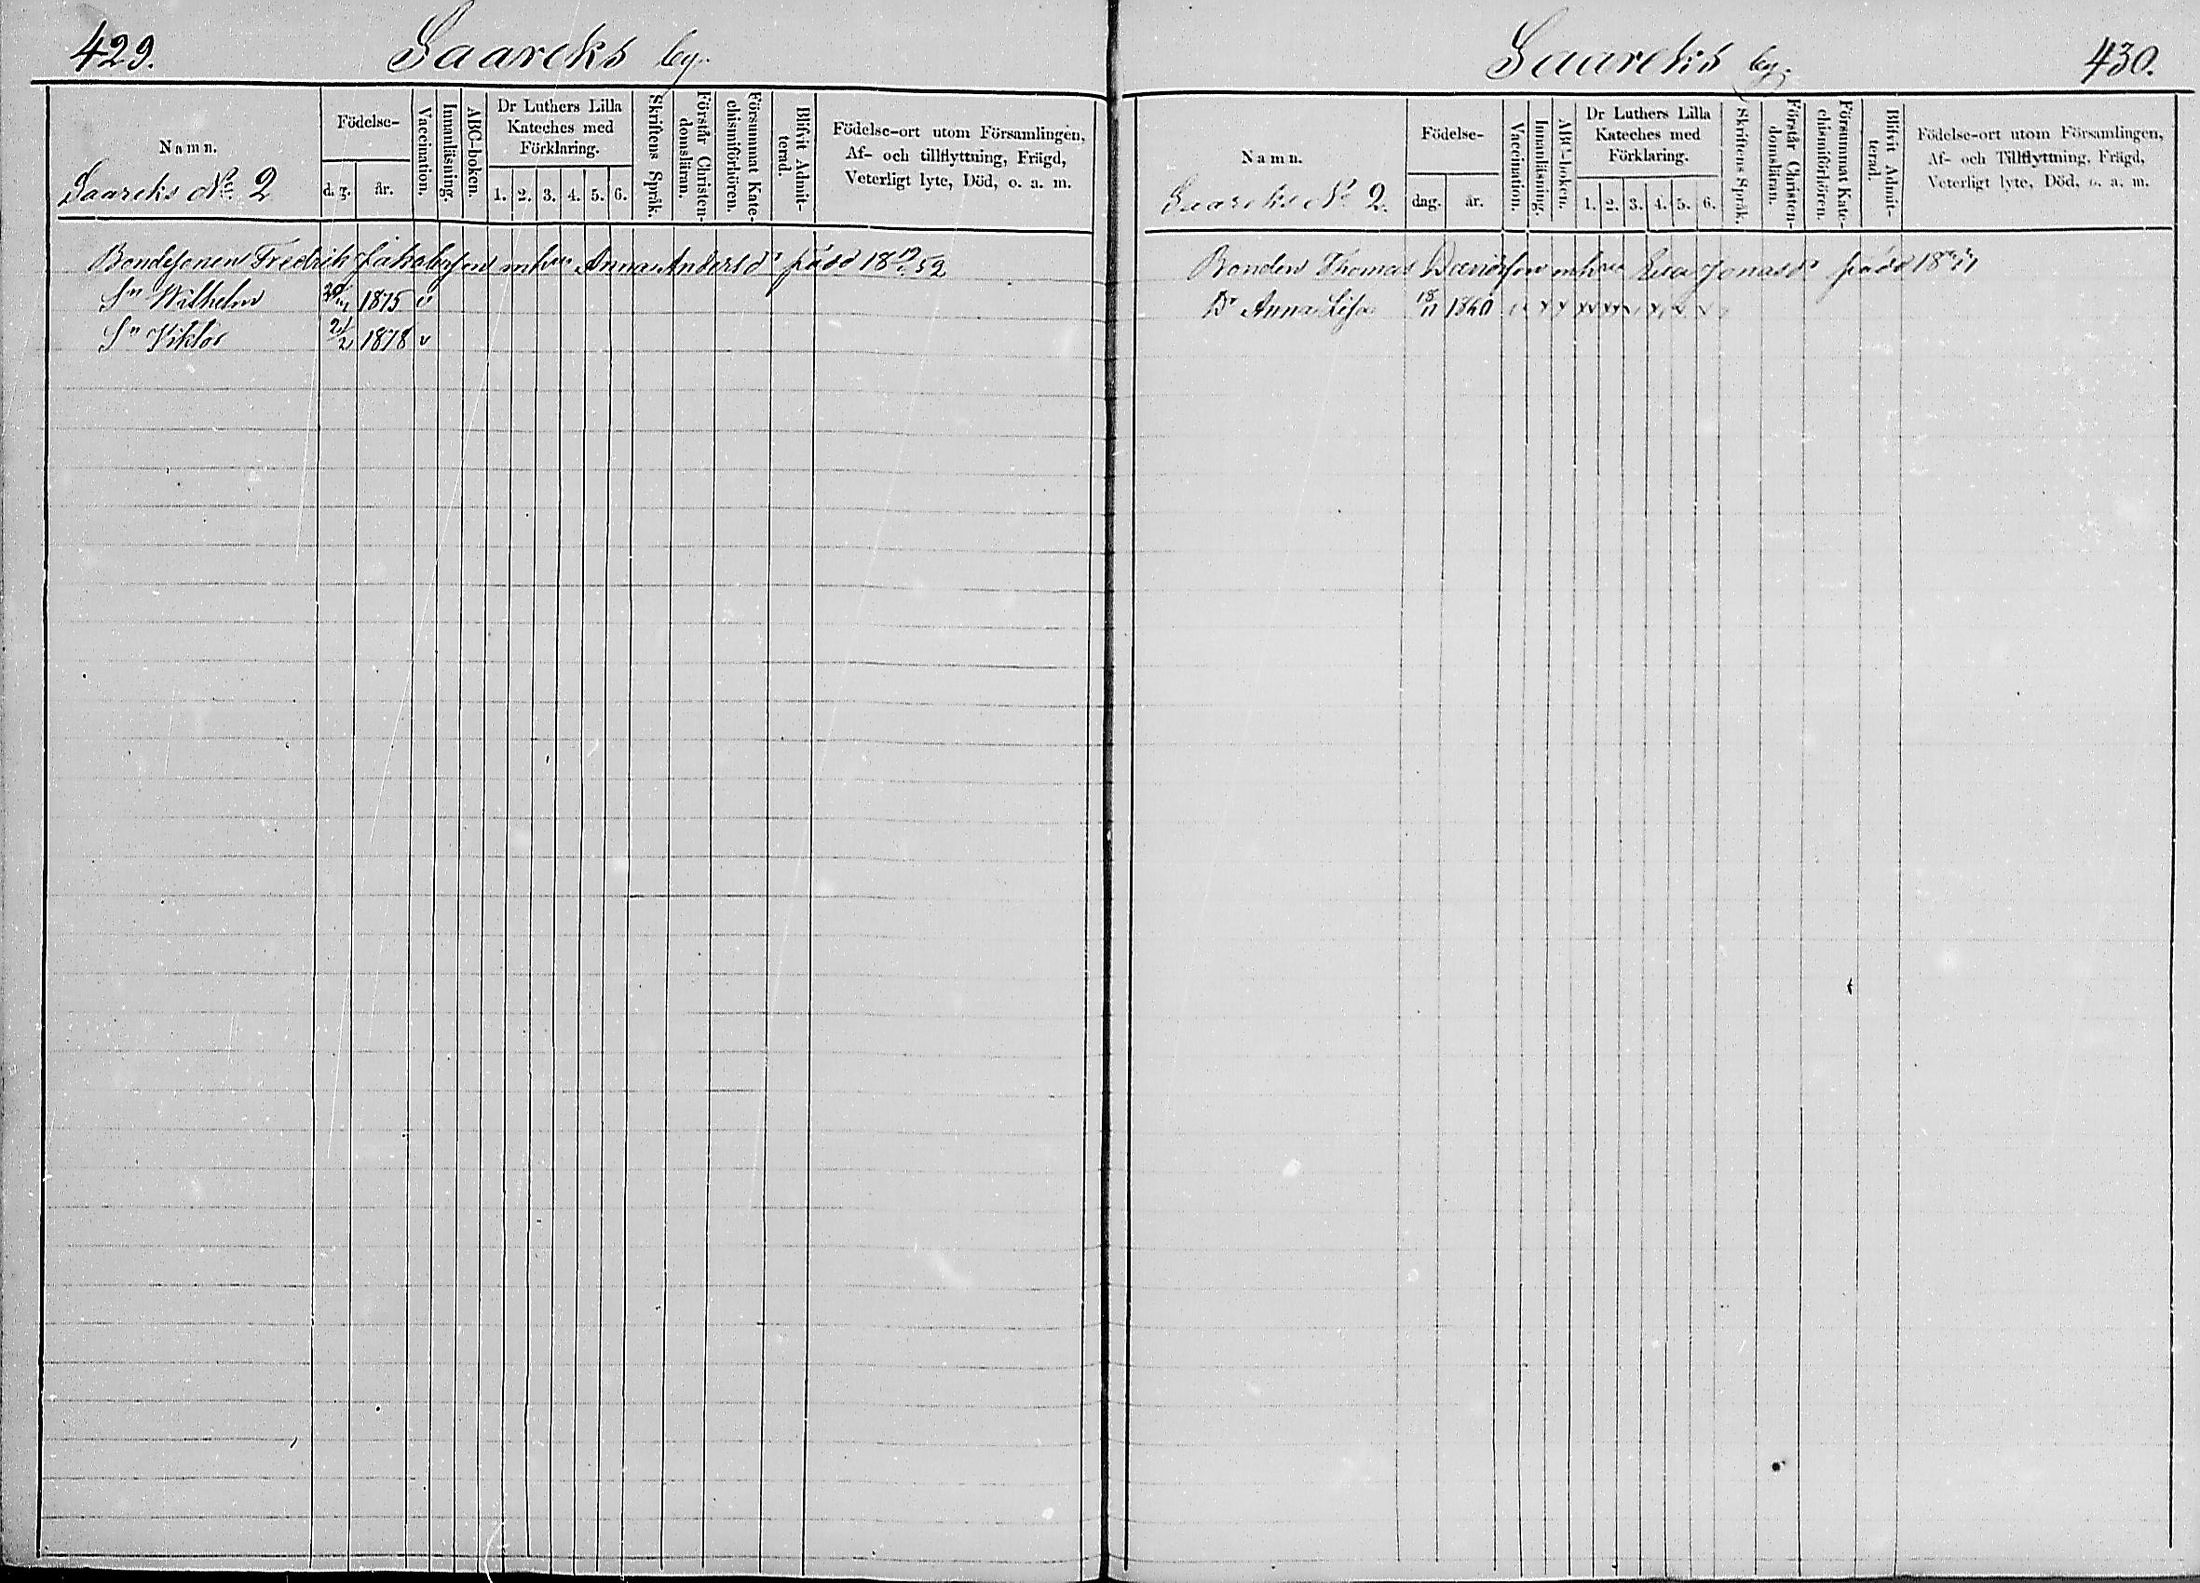 429. Saareks by.
Namn.
Saareks No. 2
Födelse-
d. g. år.
Vaccination.
Innanläsning.
ABC-boken.
Dr Luthers Lilla
Kateches med
Förklaring.
1. 2. 3. 4. 5. 6.
Skriftens Språk.
Förstår Christen-
domsläran.
Försummat Kate-
chismiförhören.
Blifvit Admit-
terad.
Födelse-ort utom Församlingen,
Af- och tillflyttning, Frägd,
Veterligt lyte, Död, o. a. m.
Bondesonen Fredrik Jakobsson m hu Anna Andersdr född 18 52
Sn Wilhelm 1875 v
Sn Viktor 21/2 1878 v
Saareks by. 430.
Namn.
Saareks No 2.
Födelse-
dag. år.
Vaccination.
Innanläsning.
ABC-boken.
Dr Luthers Lilla
Kateches med
Förklaring.
1. 2. 3. 4. 5. 6.
Skriftens Språk.
Förstår Christen-
domsläran.
Försummat Kate-
chismiförhören.
Blifvit Admit-
terad.
Födelse-ort utom Församlingen,
Af- och Tillflyttning, Frägd,
Veterligt lyte, Död, o. a. m.
Bonden Thomas m hu Eva Jonasdr född
Dr Anna Lisa 18/11 1860